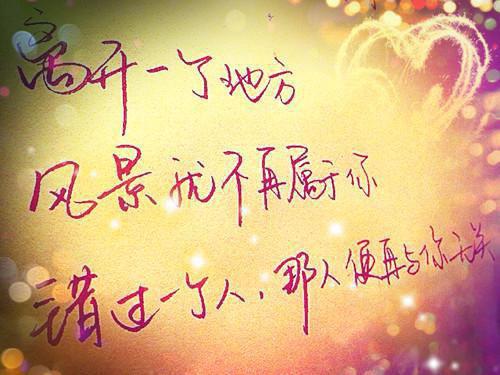 离开一个地方
风景就不再属于你
错过一个人,那人便再与你无关